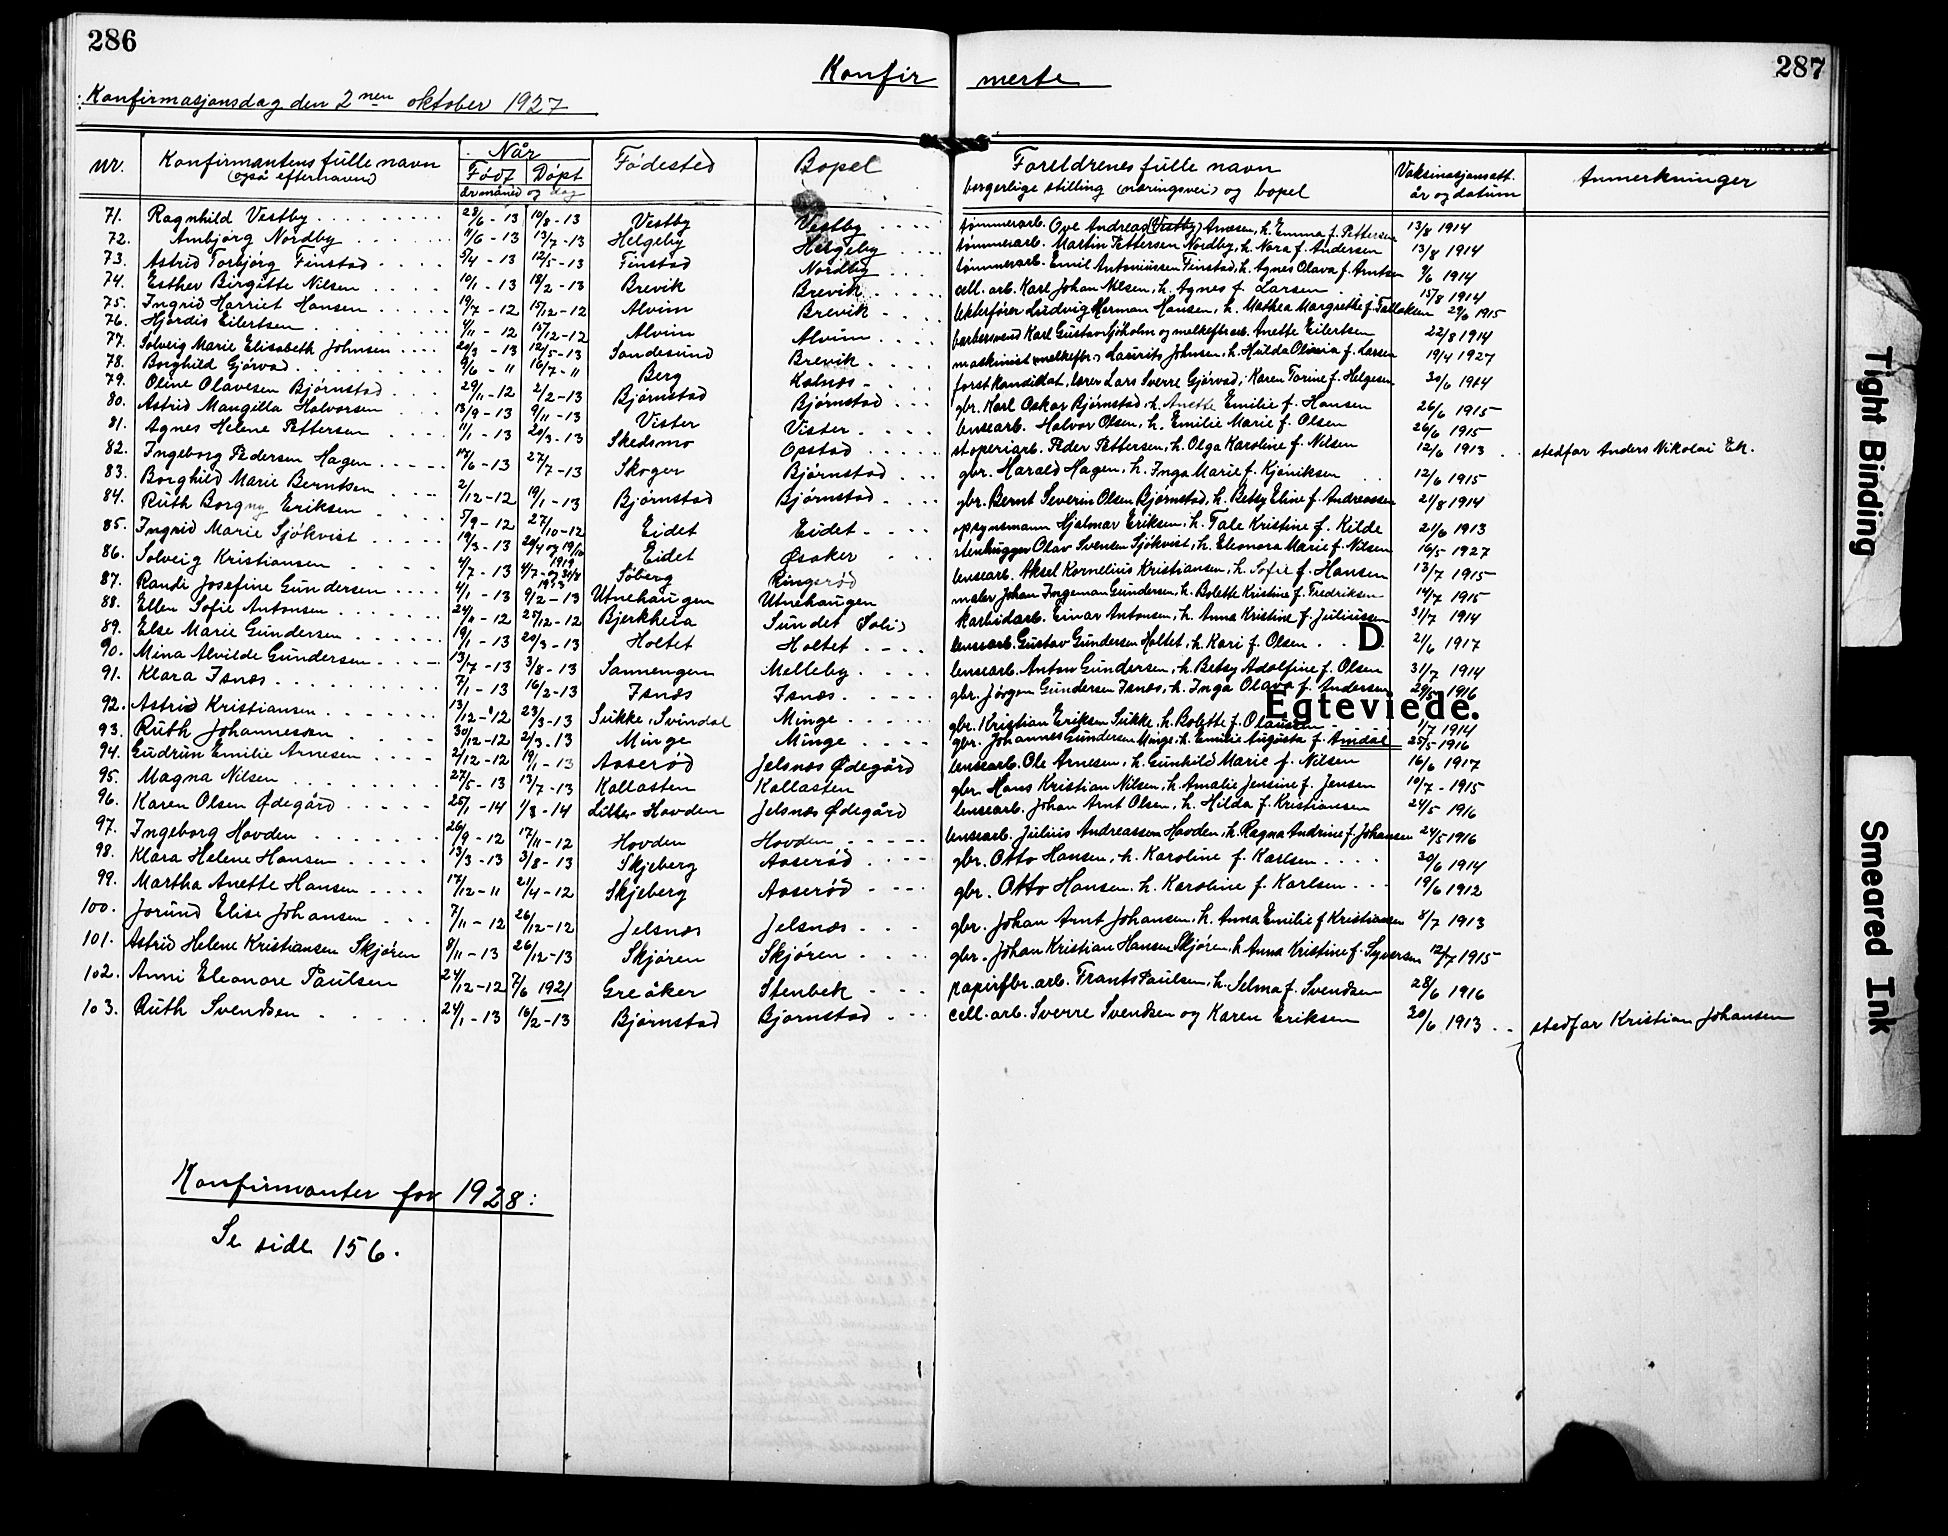 286
287
Konfirmerte
Konfirmasjonsdag den 2nen oktober 1927
nr. Konfirmantens fulle navn (også efternavn) Når Født Døpt år måned og dag Fødested Bopel Foreldrenes fulle navn borgerlige stilling (næringsvei) og bopel Vaksinasjonsatt. år og datum Anmerkninger
71. Ragnhild Vestby 28/6-13 10/8-13 Vestby Vestby tømmerarb. Ove Andreas (Vestby) Arnesen, h. Emma f. Pettersen 13/8 1914
72. Ambjörg Nordby 11/6-13 13/7-13 Helgeby Helgeby tømmerarb. Martin Pettersen Nordby, h. Nora f. Andersen 13/8 1914
73. Astrid Torbjörg Finstad 5/4-13 12/5-13 Finstad Nordby tømmerarb. Emil Antoniussen Finstad, h. Agnes Olava f. Arntsen 9/6 1914
74. Esther Birgitte Nilsen 10/1-13 18/2-13 Brevik Brevik cell. arb. Karl Johan Nilsen, h. Agnes f. Larsen 15/8 1914
75. Ingrid Harriet Hansen 19/7-12 15/12-12 Alvim Brevik lekterfører Ludvig Herman Hansen, h. Mathea Margrethe f. Tallaksen 29/6 1915
76. Hjördis Eilertsen 4/11-12 15/12-12 Alvim Alvim barbersvend Karl Gustav Sjöholm og melkefbr.arb. Anette Eilertsen 22/8 1914
77. Solveig Marie Elisabeth Johnsen 20/3-13 12/5-13 Sandesund Brevik maskinist (melkefbr.) Laurits Johnsen, h. Hulda Olivia f. Larsen 19/4 1927
78. Borghild Gjörvad 9/6-11 16/7-11 Berg Kalnes forstkandidat, lærer Lars Sverre Gjörvad, Karen Torine f. Helgesen 30/6 1914
79. Oline Olavesen Björnstad 29/11-12 2/2-13 Björnstad Björnstad gbr. Karl Oskar Björnstad, h. Anette Emilie f. Hansen 26/6 1915
80. Astrid Mangilla Halvorsen 13/9-13 9/11-13 Vister Vister lensearb. Halvor Olsen, h. Emilie Marie f. Olsen 26/6 1915
81. Agnes Helene Pettersen 11/1-13 24/3-13 Skedsmo Opstad støperiarb. Peder Pettersen, h. Olga Karoline f. Nilsen 12/6 1913 stedfar Anders Nikolai Ek.
82. Ingeborg Pedersen Hagen 17/6-13 27/7-13 Skoger Björnstad gbr. Harald Hagen, h. Inga Marie f. Kjöniksen 12/6 1915
83. Borghild Marie Berntsen 2/12-12 19/1-13 Björnstad Björnstad gbr. Bernt Severin Olsen Björnstad, h. Betsy Eline f. Andreassen 21/8 1914
84. Ruth Borgny Eriksen 5/9-12 27/10-12 Eidet Eidet opsynsmann Hjalmar Eriksen, h. Tale Kristine f. Kilde 21/6 1913
85. Ingrid Marie Sjökvist 19/3-13 20/4 og 19/10 1919 Eidet Øsaker stenhugger Olav Svensen Sjökvist, h. Eleonora Marie f. Nilsen 16/5 1927
86. Solveig Kristiansen 4/7-13 4/7- og 31/8 1913 Söberg Ringerød lensearb. Aksel Kornelius Kristiansen, h. Sofie f. Hansen 13/7 1915
87. Randi Josefine Gundersen 4/1-13 9/2-13 Utnehaugen Utnehaugen maler Johan Ingeman Gundersen, h. Bolette Kristine f. Fredriksen 14/7 1915
88. Ellen Sofie Antonsen 24/11-12 25/12-12 Bjerkheia Sundet Soli karbidarb. Einar Antonsen, h. Anna Kristine f. Juliussen 31/7 1914
89. Else Marie Gundersen 19/1-13 24/3-13 Holtet Holtet lensarb. Gustav Gundersen Holtet, h. Kari f. Olsen 21/6 1917
D.
90. Mina Alvilde Gundersen 13/7-13 3/8-13 Sannengen Melleby lensearb. Anton Gundersen, h. Betsy Adolfine f. Olsen 31/7 1914
91. Klara Isnæs 7/1-13 16/2-13 Isnæs Isnæs gbr. Jörgen Gundersen Isnæs, h. Inga Olava f. Andersen 29/5 1916
Egteviede.
92. Astrid Kristiansen 13/12-12 23/3-13 Sukke, Svindal Minge gbr. Kristian Eriksen Sukke, h. Bolette f. Olaussen 1/7 1914
93. Ruth Johannessen 30/12-12 2/3-13 Minge Minge gbr. Johannes Gundersen Minge, h. Emilie Augusta f. Amdal 25/5 1916
94. Gudrun Emilie Arnesen 2/12-12 19/1-13 Aaserød Jelsnæs Ødegård lensearb. Ole Arnesen, h. Gunhild Marie f. Nilsen 16/6 1917
95. Magna Nilsen 27/5-13 13/7-13 Kallasten Kallasten gbr. Hans Kristian Nilsen, h. Amalie Jensine f. Jensen 19/7-1915
96. Karen Olsen Ødegård 25/1-14 1/3-14 Litle-Hovden Jelsnæs Ødegård lensearb. Johan Arnt Olsen, h. Hilda f. Kristiansen 24/5 1916
97. Ingeborg Hovden 26/9-12 17/11-12 Hovden Hovden lensearb. Julius Andreassen Hovden, h. Ragna Andrine f. Johansen 24/5 1916
98. Klara Helene Hansen 13/3-13 3/8-13 Skjeberg Aaserød gbr. Otto Hansen, h. Karoline f. Karlsen 30/6 1914
99. Martha Anette Hansen 17/12-11 21/4-12 Skjeberg Aaserød gbr. Otto Hansen, h. Karoline f. Karlsen 19/6 1912
100. Jorund Elise Johansen 7/11-12 26/12-12 Jelsnæs Jelsnæs gbr. Johan Arnt Johansen, h. Anna Emilie f Kristiansen 8/7 1913
101. Astrid Helene Kristiansen Skjören 8/11-13 26/12-13 Skjören Skjören gbr. Johan Kristian Hansen Skjören, h. Anna Kristine f. Syversen 12/7 1915
102. Anni Eleonore Paulsen 24/12-12 7/6 1921 Greåker Stenbek papirfbr. arb. Frants Paulsen, h. Selma f. Svendsen 28/6 1916
103. Ruth Svendsen 24/1-13 16/2-13 Björnstad Björnstad cell. arb. Sverre Svendsen og Karen Eriksen 30/6 1913 stedfar Kristian Johansen
Konfirmanter for 1928:
Se side 156.
Tight Binding
Smeared Ink